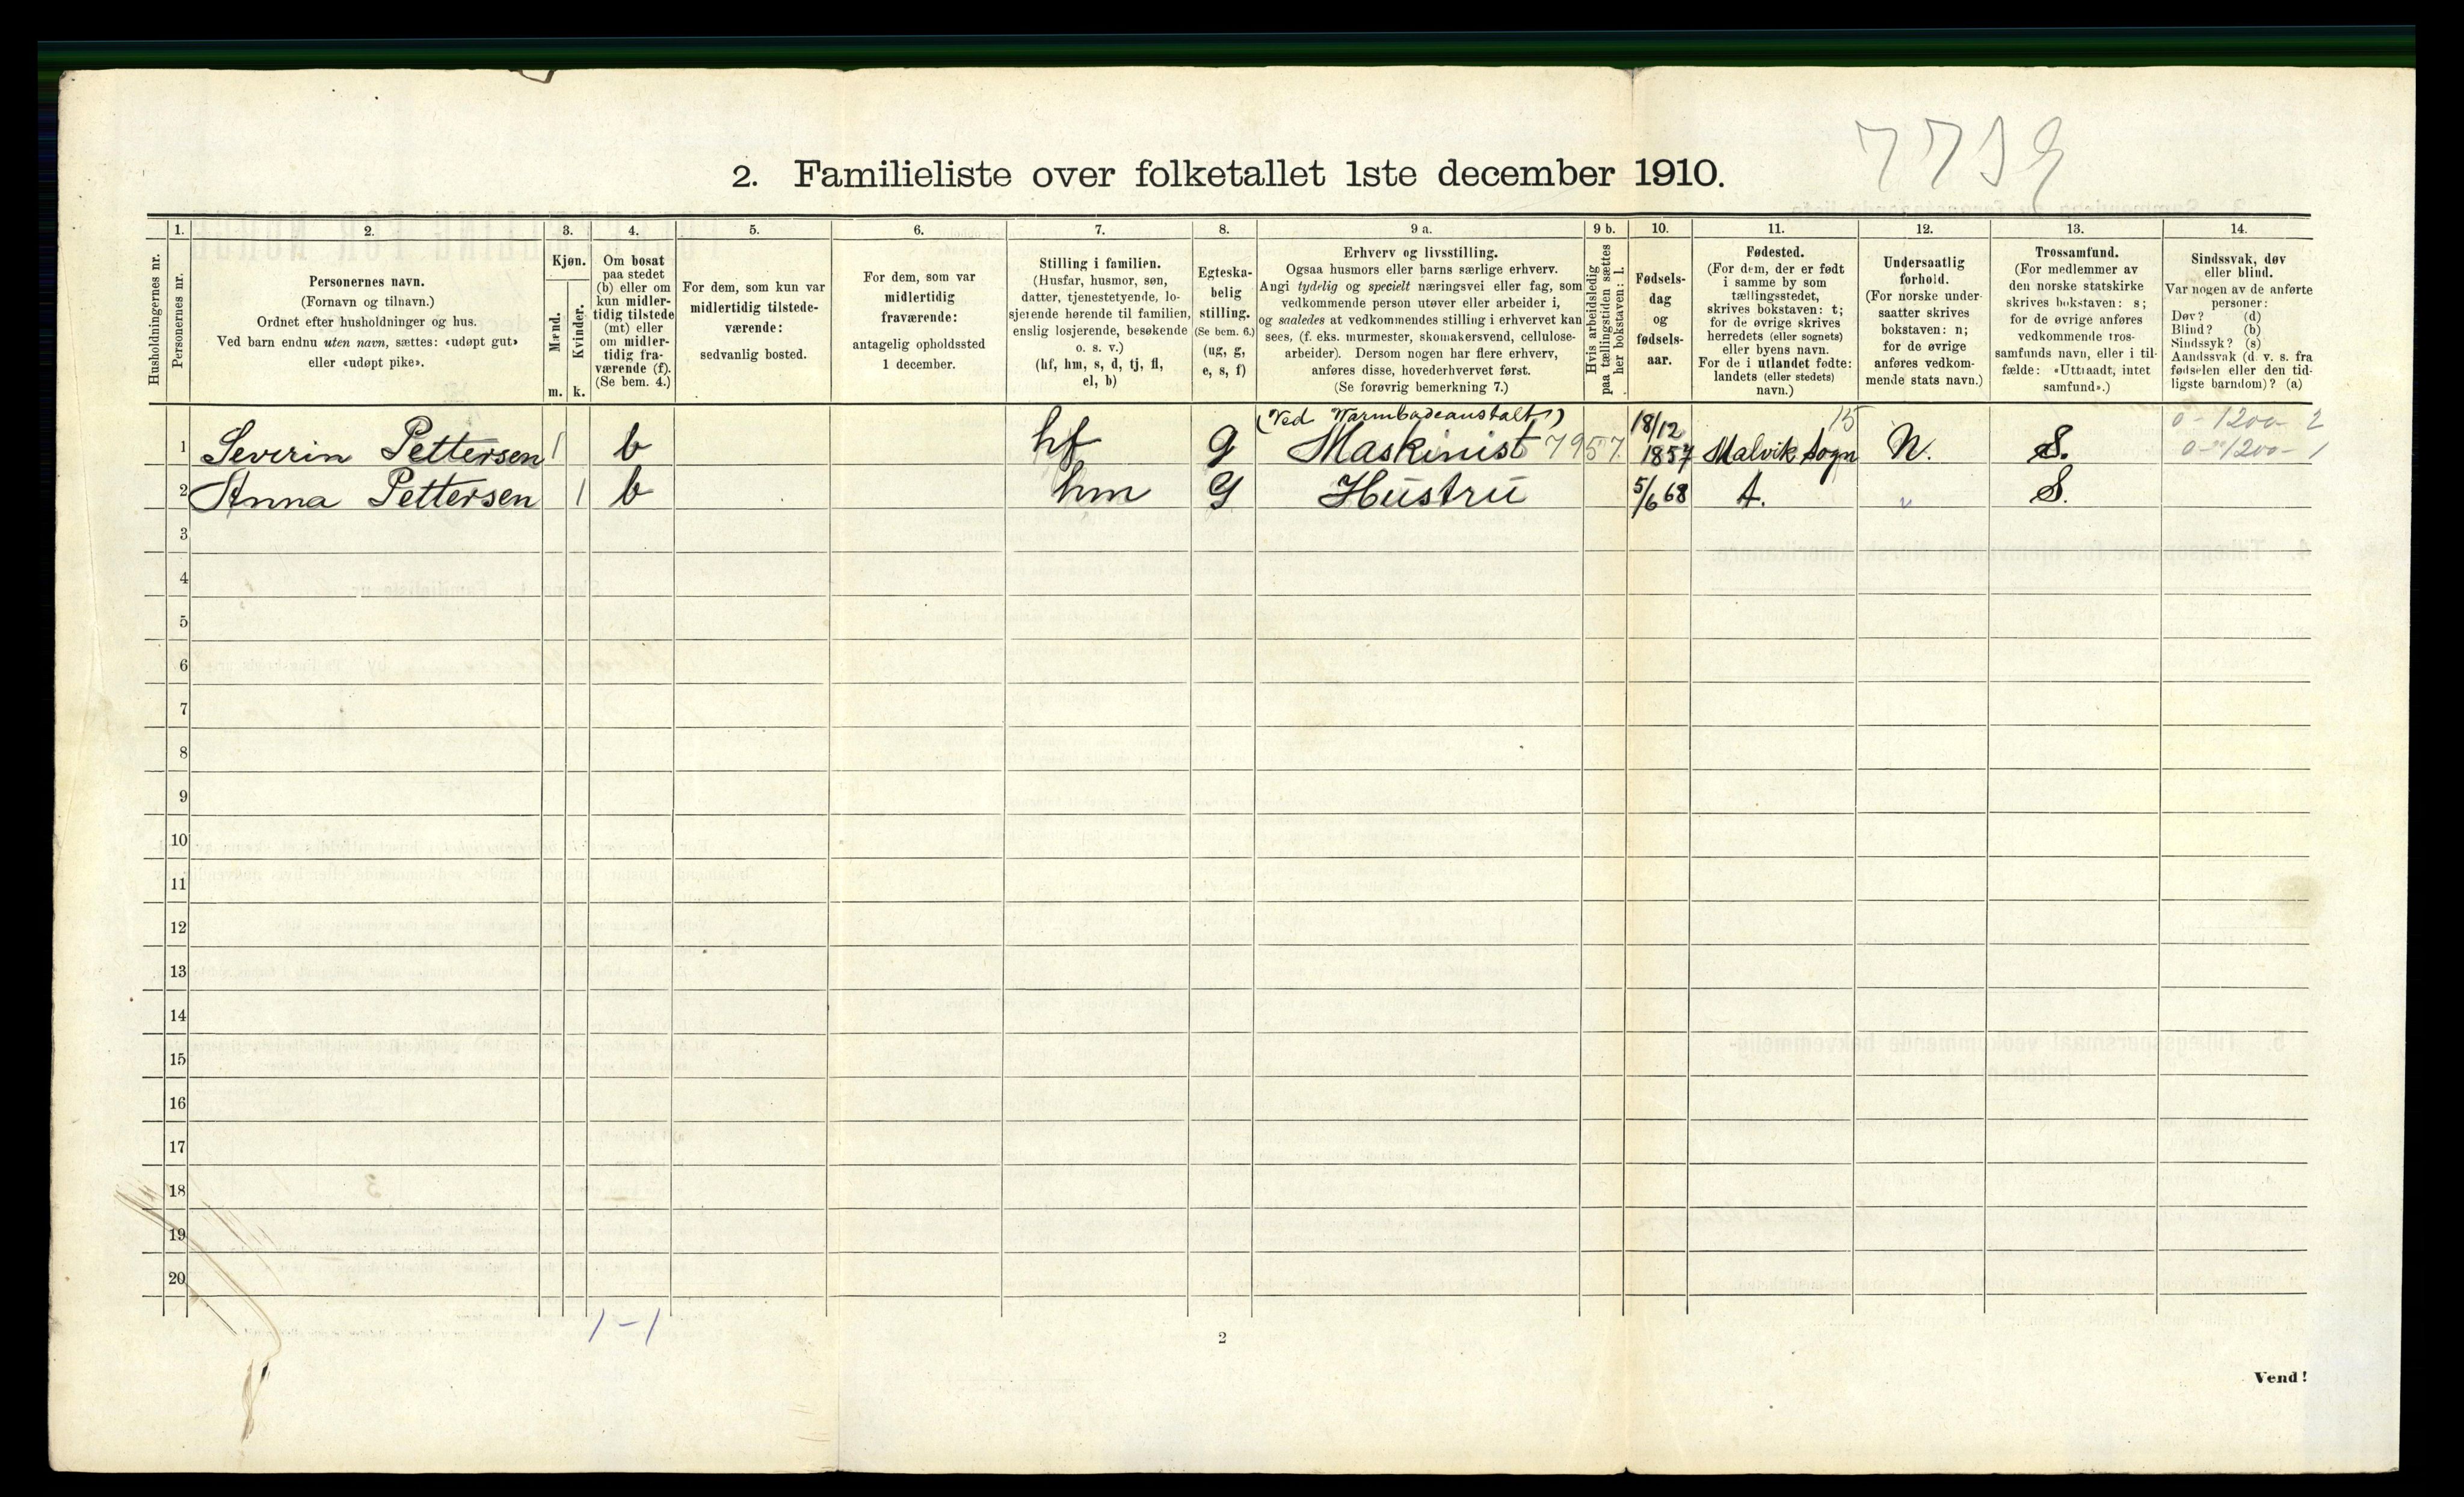 2. Familieliste over folketallet 1ste december 1910.
Husholdningernes nr.
1.
Personernes nr.
2.
Personernes navn.
(Fornavn og tilnavn.)
Ordnet efter husholdninger og hus.
Ved barn endnu uten navn, sættes: «udøpt gut»
eller «udøpt pike».
3.
Kjøn.
Mænd.
Kvinder.
m. k.
4.
Om bosat
paa stedet
(b) eller om
kun midler-
tidig tilstede
(mt) eller
om midler-
tidig fra-
værende (f).
(Se bem. 4.)
5.
For dem, som kun var
midlertidig tilstede-
værende:
sedvanlig bosted.
6.
For dem, som var
midlertidig
fraværende:
antagelig opholdssted
1 december.
7.
Stilling i familien.
(Husfar, husmor, søn,
datter, tjenestetyende, lo-
sjerende hørende til familien,
enslig losjerende, besøkende
o. s. v.)
(hf, hm, s, d, tj, fl,
el, b)
8.
Egteska-
belig
stilling.
(Se bem. 6.)
(ug, g,
e, s, f)
9 a.
Erhverv og livsstilling.
Ogsaa husmors eller barns særlige erhverv.
Angi tydelig og specielt næringsvei eller fag, som
vedkommende person utøver eller arbeider i,
og saaledes at vedkommendes stilling i erhvervet kan
sees, (f. eks. murmester, skomakersvend, cellulose-
arbeider). Dersom nogen har flere erhverv,
anføres disse, hovederhvervet først.
(Se forøvrig bemerkning 7.)
9 b.
Hvis arbeidsledig
paa tællingstiden sættes
her bokstaven: l.
10.
Fødsels-
dag
og
fødsels-
aar.
11.
Fødested.
(For dem, der er født
i samme by som
tællingsstedet,
skrives bokstaven: t;
for de øvrige skrives
herredets (eller sognets)
eller byens navn.
For de i utlandet fødte:
landets (eller stedets)
navn.)
12.
Undersaatlig
forhold.
(For norske under-
saatter skrives
bokstaven: n;
for de øvrige
anføres vedkom-
mende stats navn.)
13.
Trossamfund.
(For medlemmer av
den norske statskirke
skrives bokstaven: s;
for de øvrige anføres
vedkommende tros-
samfunds navn, eller i til-
fælde: «Uttraadt, intet
samfund».)
14.
Sindssvak, døv
eller blind.
Var nogen av de anførte
personer:
Døv? (d)
Blind? (b)
Sindssyk? (s)
Aandssvak (d. v. s. fra
fødselen eller den tid-
ligste barndom)? (a)
(Ved Varmbadeanstalt) 18/12 15 0-1200-2
1 Severin Pettersen 1 b hf g Maskinist 7957 1857 Malvik Sogn N. S.
2 Anna Pettersen 1 b hm g Hustru 5/6 68 t. S.
3
4
5
6
7
8
9
10
11
12
13
14
15
16
17
18
19
20
1-1
2
Vend!